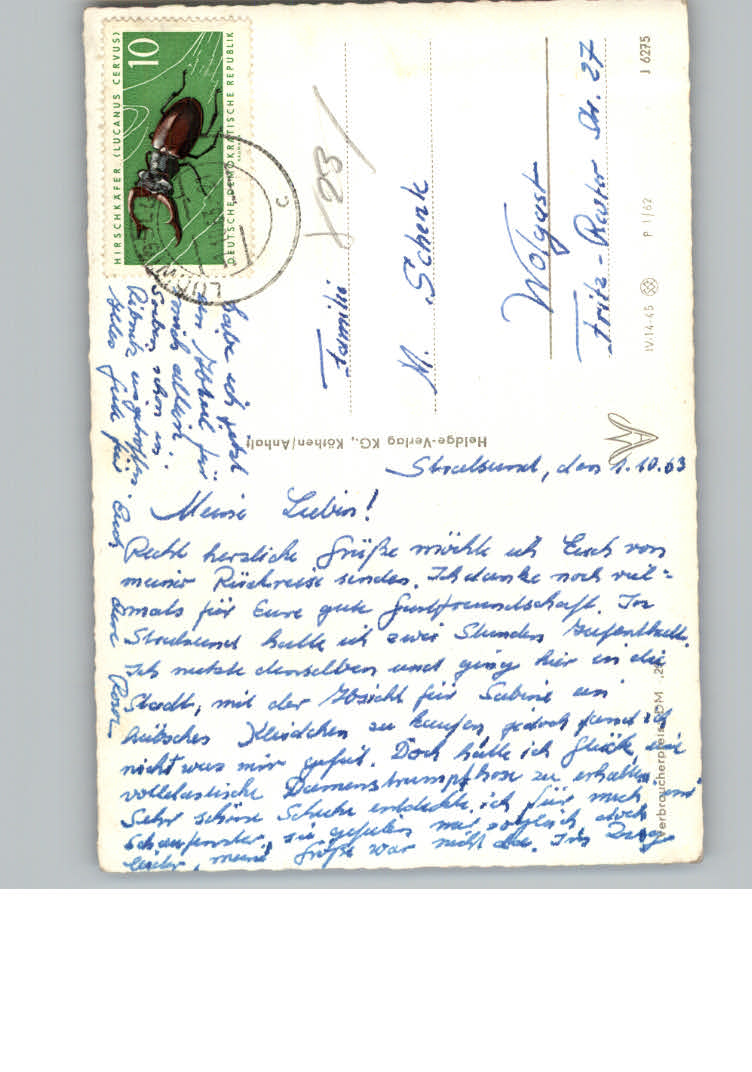 HIRSCHKÄFER (LUCANUS CERVUS)
10
DEUTSCHE DEMOKRATISCHE REPUBLIK
C
Familie
M. Schenk
Wolgast
Fritz-Reuter Str. 27
J 6275
P 1/62
IV-14-45
Heldge-Verlag KG., Köthen/Anhalt
Verbraucherpreis DM
Stralsund, den 1.10.63
Meine Lieben!
Recht herzliche Grüße möchte ich Euch von
meiner Rückreise senden. Ich danke noch viel-
mals für Eure gute Gastfreundschaft. In
Stralsund hatte ich zwei Stunden Aufenthalt.
Ich nutzte denselben und ging hier in die
Stadt, mit der Absicht für Sabine ein
hübsches Kleidchen zu kaufen, jedoch fand ich
nicht was mir gefiel. Doch hatte ich Glück eine
vollelastische Damenstrumpfhose zu erhalten.
Sehr schöne Schuhe entdeckte ich für mich im
Schaufenster, sie gefielen mir sogleich doch
leider, meine Größe war nicht da. Im Zug
habe ich jetzt
ein Abteil für
mich allein.
Soeben schon in
Ribnitz eingetroffen.
Alles Gute für Euch
Eure Rosel